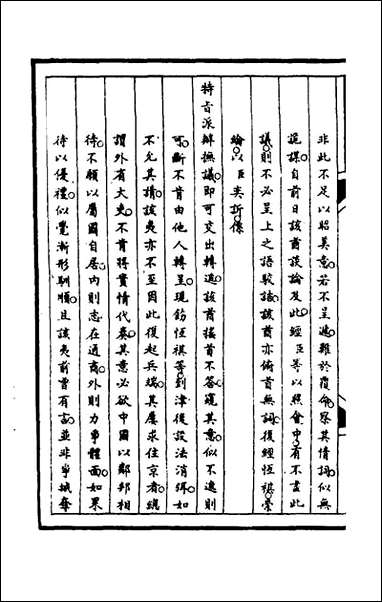 非此不足以昭美意若不呈遞難於覆命察其情詞似無
詭謀自前日該酋談論及此經臣等以照會中有不盡此
議則不必呈上之語駁詰該酋亦俯首無詞復經恆祺
論以臣奕訢係
特旨派辦撫議即可交出轉遞該酋搖首不答窺其意似不遞則
可斷不肯由他人轉呈現飭恆祺等到津後設法消弭如
不允其請該夷亦不至因此復起兵端其屢求住京者總
謂外省大吏不肯將實情代奏其意必欲中國以鄰邦相
待不願以屬國自居內則志在通商外則力爭體面如果
待以優禮似覺漸形馴順且該夷前曾有言並非爭城奪